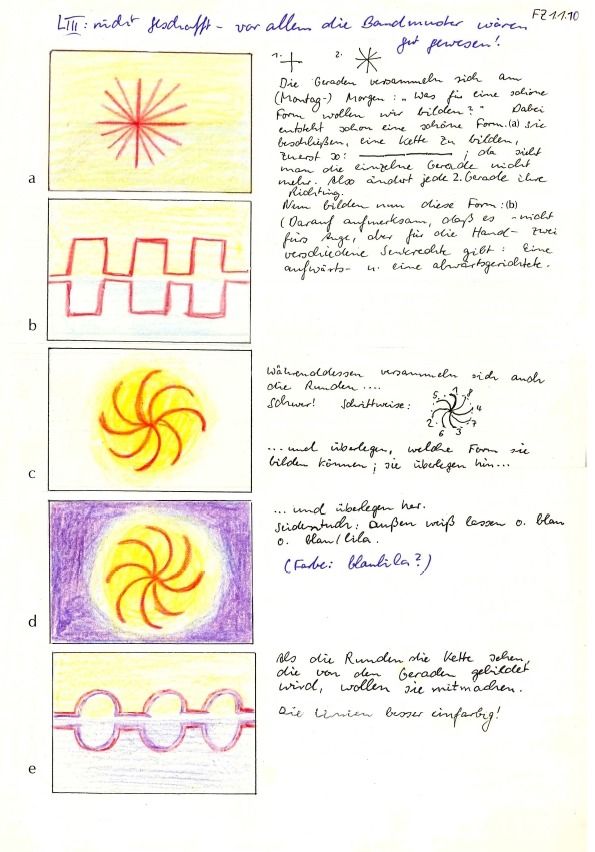 LIII: nicht geschafft - vor allem die Bandmuster wären
gut gewesen!
FZ 1.1.10
1. 2.
Die Geraden versammeln sich am
(Montag-) Morgen: „Was für eine schöne
Form wollen wir bilden?" Dabei
entsteht schon eine schöne Form. (a) Sie
beschließen, eine Kette zu bilden,
zuerst so: ————, da sieht
man die einzelne Gerade nicht
mehr. Also ändert jede 2. Gerade ihre
Richtung.
Nun bilden nun diese Form: (b)
(Darauf aufmerksam, daß es - nicht
fürs Auge, aber für die Hand - zwei
verschiedene Senkrechte gibt: Eine
aufwärts- u. eine abwärtsgerichtete.
a
b
Währenddessen versammeln sich auch
die Runden ....
Schwer! Schrittweise:
5 1 8
4
2 7
6 3
... und überlegen, welche Form sie
bilden können; sie überlegen hin...
c
... und überlegen her.
Seidentuch: außen weiß lassen o. blau
o. blau/lila.
(Farbe: blaulila?)
d
Als die Runden die Kette sehen,
die von den Geraden gebildet
wird, wollen sie mitmachen.
Die Linien besser einfarbig!
e